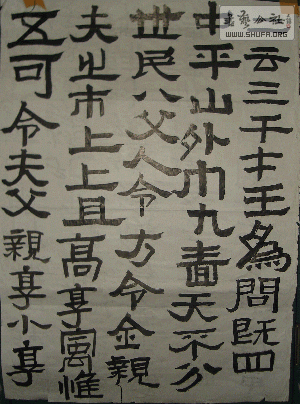 云三千才王為問既四
中平山外巾九畫天不分
世民八父人令方令金親
夫之市上上且高享寓惟
五可令夫父親享小享
WWW.SHUFA.ORG